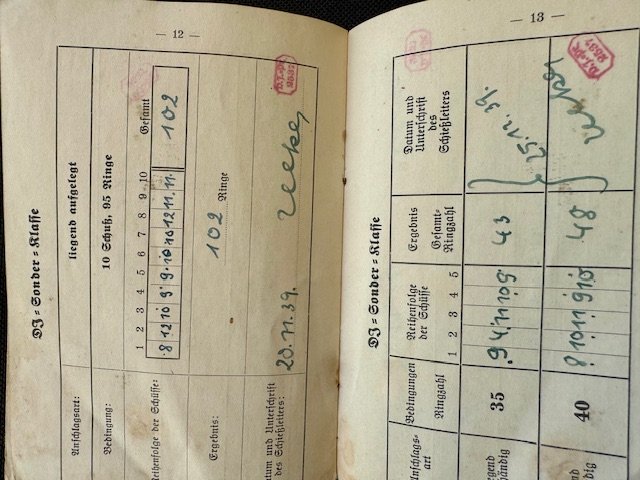 — 12 —
DJ=Sonder=Klasse
Anschlagsart: liegend aufgelegt
Bedingung: 10 Schuß, 95 Ringe
Reihenfolge der Schüsse: 1 2 3 4 5 6 7 8 9 10 Gesamt
8 12 10 9 9 10 10 12 11 11 102
Ergebnis: 102 Ringe
Datum und Unterschrift
des Schießleiters:
20. 11. 39.
D.J.
2537
— 13 —
DJ=Sonder=Klasse
Anschlags-
art
Bedingungen
Ringzahl
Reihenfolge
der Schüsse
1 2 3 4 5
Ergebnis
Gesamt-
Ringzahl
Datum und
Unterschrift
des
Schießleiters
liegend
händig
35
9 4 11 10 9
43
25. 11. 39.
liegend
händig
40
8 10 11 9 10
48
D.J.
2537